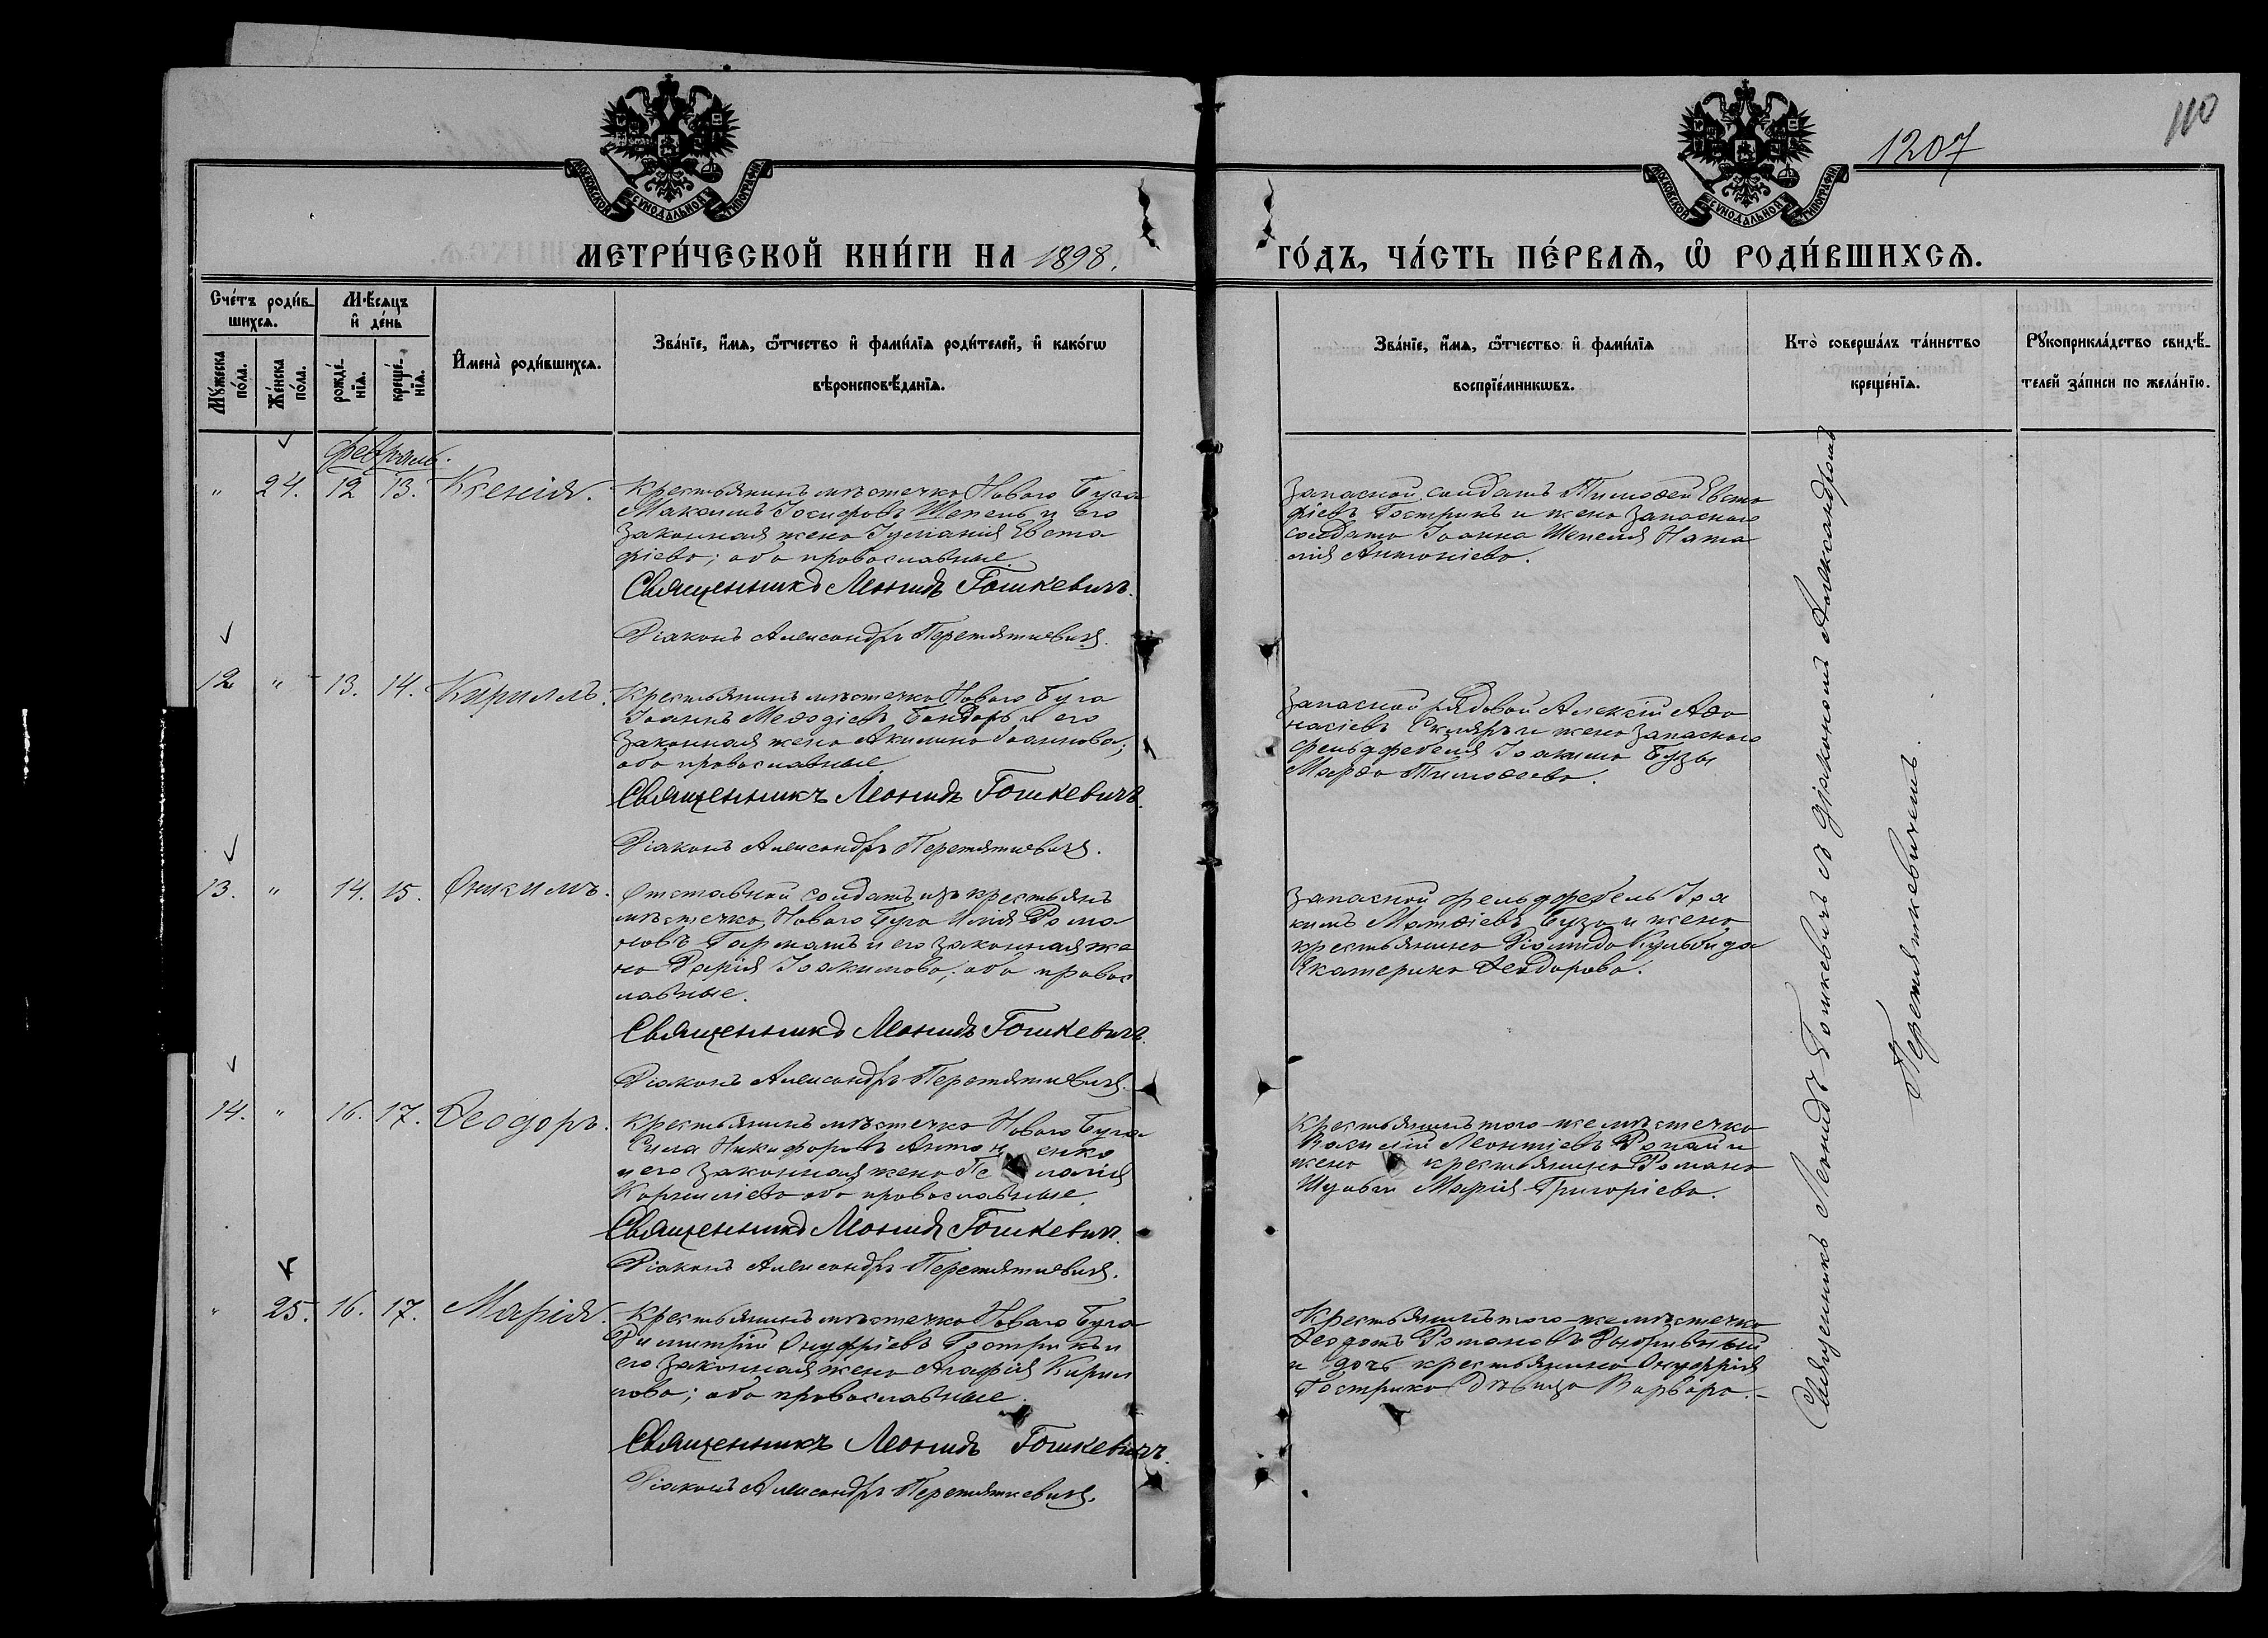 110
1207
МОСКОВСКОЙ СѴНОДАЛЬНОЙ ТИПОГРАФІИ
МОСКОВСКОЙ СѴНОДАЛЬНОЙ ТИПОГРАФІИ
МЕТРИ́ЧЕСКОЙ КНИ́ГИ НА 1898.
ГО́ДЪ, ЧА́СТЬ ПЕ́РВАѦ, Ѡ҆ РОДИ́ВШИХСѦ.
Сче́тъ роди́в-
шихсѧ.
Мꙋ́жеска по́ла.
Же́нска по́ла.
М҆ѣ́сѧцъ
и҆ де́нь
рожде́-
нїѧ.
креще́-
нїѧ.
И҆мена̀ роди́вшихсѧ.
Зва́нїе, и҆́мѧ, ѻ҆́тчество и҆ фамѝлїѧ роди́телей, и҆ како́гѡ
вѣроисповѣ́данїѧ.
Зва́нїе, и҆́мѧ, ѻ҆́тчество и҆ фами́лїѧ
воспрїе́мникѡвъ.
Кто̀ соверша́лъ та́инство
креще́нїѧ.
Рꙋкоприкла́дство свидѣ́-
телей за́писи по жела́нїю.
Февраль.
" 24. 12 13. Ксенія.
Крестьянинъ мѣстечка Новаго Буга
Максимъ Іосифовъ Шепель и его
законная жена Іуліанія Евста
фіева; оба православные.
Священникъ Леонидъ Гошкевичъ.
Діаконъ Александръ Перетяткевичъ.
Запасной солдатъ Тимоѳей Евста
фіевъ Гострикъ и жена запаснаго
солдата Іоанна Шепеля Ната
лія Антоніева.
12 " 13. 14. Кириллъ.
Крестьянинъ мѣстечка Новаго Буга
Іоаннъ Меѳодіевъ Бондарь и его
законная жена Акилина Іоаннова;
оба православные.
Священникъ Леонидъ Гошкевичъ.
Діаконъ Александръ Перетяткевичъ.
Запасной рядовой Алексій Аѳа
насіевъ Скляръ и жена запаснаго
фельдфебеля Іоакима Бузы
Марѳа Тимоѳеева.
13. " 14. 15. Онисимъ.
Отставной солдатъ изъ крестьянъ
мѣстечка Новаго Буга Илія Рома
новъ Гармашъ и его законная же
на Дарія Іоакимова; оба правос
лавные.
Священникъ Леонидъ Гошкевичъ.
Діаконъ Александръ Перетяткевичъ.
Запасной фельдфебель Іоа
кимъ Матѳіевъ Буза и жена
крестьянина Діомида Кульбида
Екатерина Ѳеодорова.
14. " 16. 17. Ѳеодоръ.
Крестьянинъ мѣстечка Новаго Буга
Сила Никифоровъ Антоненко
и его законная жена Пелагія
Корниліева оба православные.
Священникъ Леонидъ Гошкевичъ.
Діаконъ Александръ Перетяткевичъ.
Крестьянинъ того-же мѣстечка
Василій Леонтіевъ и
жена крестьянина Романа
Шульги Марія Григоріева.
" 25. 16. 17. Марія.
Крестьянинъ мѣстечка Новаго Буга
Димитрій Онуфріевъ Гострикъ и
его законная жена Агафія Кирил
лова; оба православные.
Священникъ Леонидъ Гошкевичъ.
Діаконъ Александръ Перетяткевичъ.
Крестьянинъ того-же мѣстечка
Ѳеодотъ Романовъ
и дочь крестьянина Онуфрія
Гострика дѣвица Варвара.-
Священникъ Леонидъ Гошкевичъ съ діакономъ Александромъ
Перетяткевичемъ.